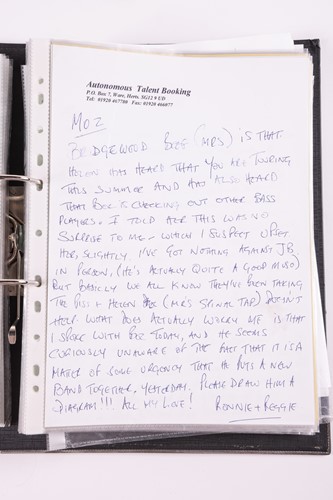 Autonomous Talent Booking
P.O. Box 7, Ware, Herts. SG12 9 UD
Tel: 01920 467780 Fax: 01920 466077
MOZ
BRIDGEWOOD BOZE (MRS) IS THAT
HELEN HAS HEARD THAT YOU ARE TOURING
THIS SUMMER AND HAS ALSO HEARD
THAT BOZ IS CHECKING OUT OTHER BASS
PLAYERS. I TOLD HER THIS WAS NO
SURPRISE TO ME - WHICH I SUSPECT UPSET
HER, SLIGHTLY. I'VE GOT NOTHING AGAINST JB
IN PERSON, (HE'S ACTUALLY QUITE A GOOD MUSO)
BUT BASICLY WE ALL KNOW THEY'VE BEEN TAKING
THE PISS & HELEN (MRS SPINAL TAP) DOESN'T
HELP. WHAT DOES ACTUALLY WORRY ME IS THAT
I SPOKE WITH BOZ TODAY, AND HE SEEMS
CURIOUSLY UNAWARE OF THE FACT THAT IT IS A
MATTER OF SOME URGENCY THAT HE PUTS A NEW
BAND TOGETHER, YESTERDAY. PLEASE DRAW HIM A
DIAGRAM!!! ALL MY LOVE!
RONNIE + REGGIE